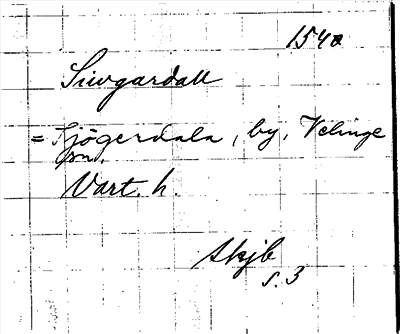 1540
Siwgardall
= Sjögerdala, by, Velinge
sn.
Vart. h.
Skjb
s. 3